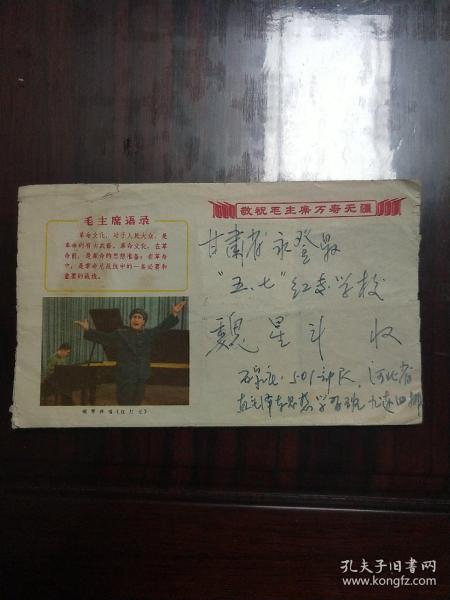 敬祝毛主席万寿无疆
毛主席语录
革命文化，对于人民大众，是
革命的有力武器。革命文化，在革
命前，是革命的思想准备；在革命
中，是革命总战线中的一条必要和
重要的战线。
钢琴伴唱《红灯记》
甘肃省永登县
“五.七”红专学校
魏星斗 收
石家庄 501部队 河北省
直毛泽东思想学习班九连四排
孔夫子旧书网
www.kongfz.com